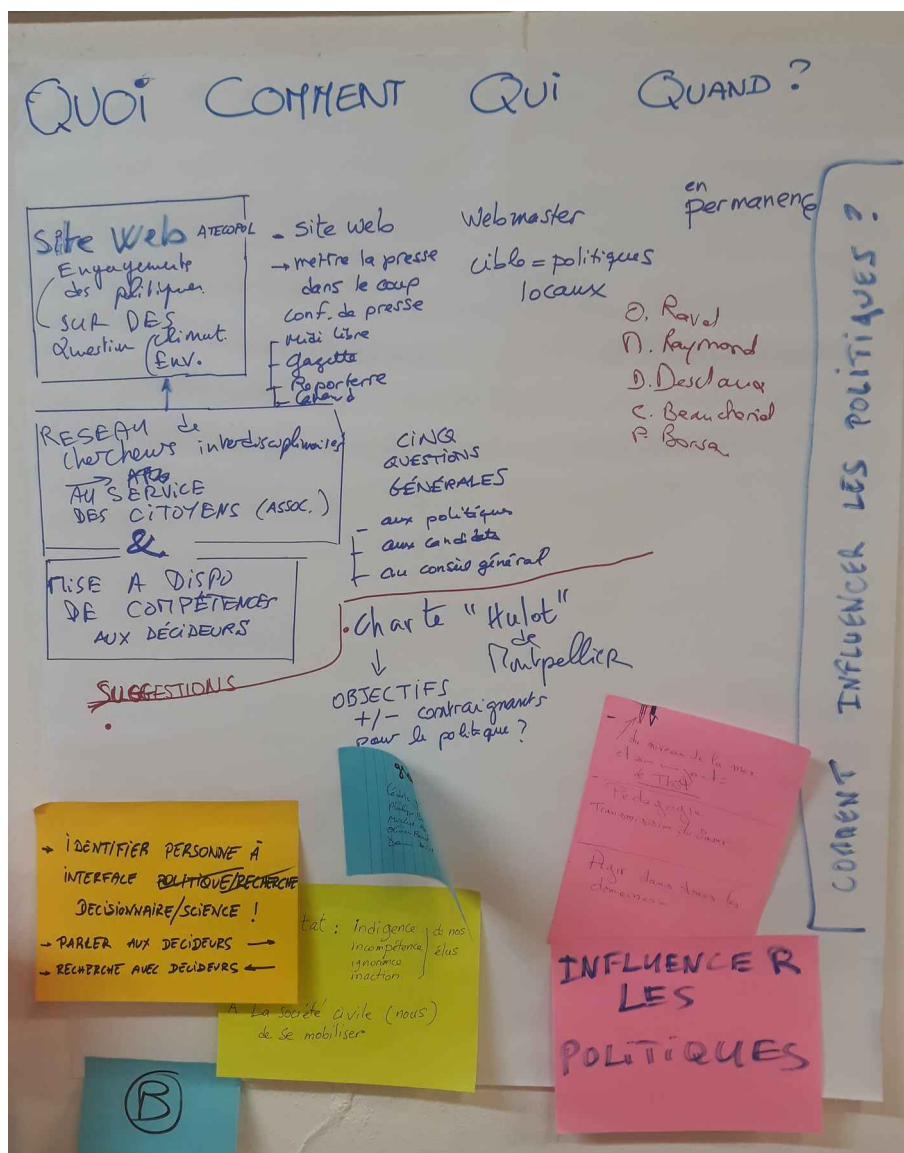 QUOI COMMENT QUI QUAND ?
Site Web ATECOPOL
Engagements
des politiques
SUR DES
Question climat.
Env.
RESEAU de
chercheurs interdisciplinaires
AU SERVICE
DES CITOYENS (ASSOC.)
&
MISE A DISPO
DE COMPÉTENCES
AUX DÉCIDEURS
SUGGESTIONS
- site web
→ mettre la presse
dans le coup
conf. de presse
- Midi Libre
- Gazette
- Reporterre
- Canard
CINQ
QUESTIONS
GÉNÉRALES
- aux politiques
- aux candidats
- au conseil général
. Charte "Hulot"
de
Montpellier
↓
OBJECTIFS
+/- contraignants
pour le politique ?
Webmaster
cible = politiques
locaux
en
permanence
O. Ravel
M. Raymond
D. Desclaux
C. Beaucheriel
P. Borsa
COMMENT INFLUENCER LES POLITIQUES ?
→ IDENTIFIER PERSONNE À
INTERFACE POLITIQUE/RECHERCHE
DECISIONNAIRE/SCIENCE !
→ PARLER AUX DECIDEURS →
→ RECHERCHE AVEC DECIDEURS ←
tat : Indigence de nos
incompétence élus
ignorance
inaction
A La société civile (nous)
de se mobiliser
du niveau de la mer
Pédagogie
Transmission du Savoir
- Agir dans tous les
domaines
INFLUENCER
LES
POLITIQUES
B